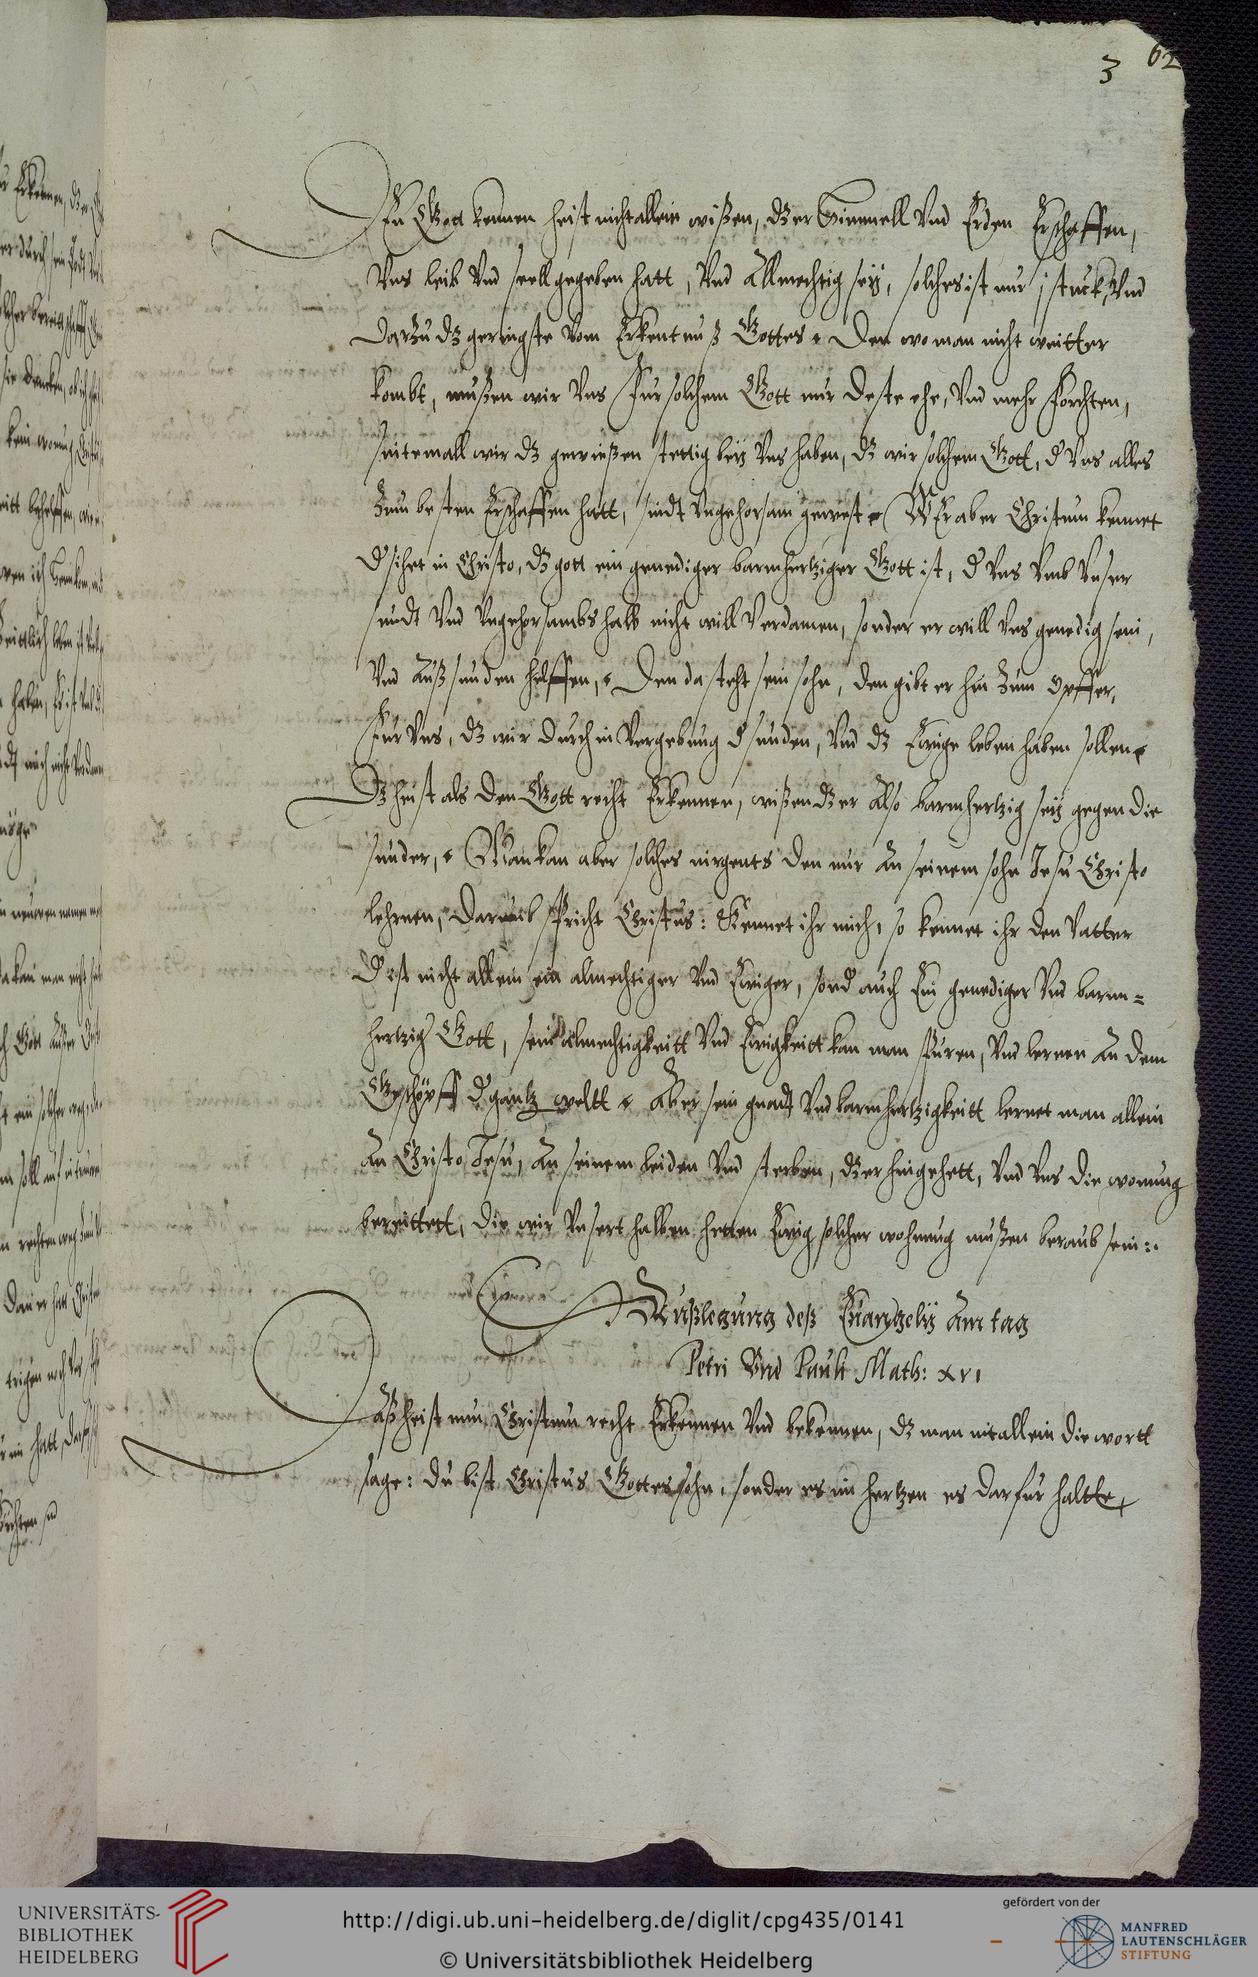 3 62
Den Gott kennen heist nicht allein wißen, dz er Himmell Vnd Erden Erschaffen,
Vns leib Vnd seell gegeben hatt, Vnd Allmechtig seÿ, solches ist nur j stuck, Vnd
Darzu dz geringste Vom Erkentnuß Gottes. Den wo man nicht weitter
kombt, mußen wir Vns fur solchem Gott nur deste ehe, Vnd mehr forchten,
seitemall wir dz gewießen stettig beÿ Vns haben, dz wir solchem Gott, d Vns alles
Zum besten Erschaffen hatt, sindt Vngehorsam gewest. Wer aber Christum kennet
d sihet in Christo, dz gott ein genediger barmhertziger Gott ist, d Vns Vmb Vnser
sundt Vnd Vngehorsambs halb nicht will Verdamen, sonder er will Vns genedig sein,
Vnd Auß sunden helffen, Den da steht sein sohn, den gibt er hin Zum opffer,
fur Vns, dz wir durch in Vergebung d sunden, Vnd dz Ewige leben haben sollen.
Dz heist als den Gott recht Erkennen, wißen dz er Also barmhertzig seÿ gegen die
sunder, Man kan aber solches nirgents den nur An seinem sohn Jesu Christo
lehrnen, Darumb spricht Christus: Kennet ihr mich, so kennet ihr den Vatter
d ist nicht allein ein almechtiger Vnd Ewiger, sond auch Ein genediger Vnd barm=
hertzig Gott, sein almechtigkeitt Vnd Ewigkeitt kan man spuren, Vnd lernen An dem
Geschöpff d gantz weltt. Aber sein gnadt Vnd barmhertzigkeitt lernet man allein
An Christo Jesu, An seinem leiden Vnd sterben, dz er hingehett, Vnd Vns die wonung
bereittett, die wir Vnsert halben hetten Ewig solcher wohnung mußen beraub sein:.
Außlegung deß Euangelÿ Am tag
Petri Vnd Pauli Math: xvi
Daß heist nun Christum recht Erkennen Vnd bekennen, dz man nit allein die wortt
sage: du bist Christus Gottes sohn, sonder es im hertzen es darfur haltte,
UNIVERSITÄTS-
BIBLIOTHEK
HEIDELBERG
http://digi.ub.uni-heidelberg.de/diglit/cpg435/0141
© Universitätsbibliothek Heidelberg
gefördert von der
MANFRED
LAUTENSCHLÄGER
STIFTUNG